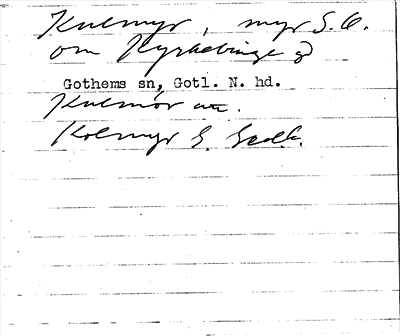 Kulmyr, myr S.O.
om Kyrkebinge gd
Gothems sn, Gotl. N. hd.
Kulmör
Kolmyr G.